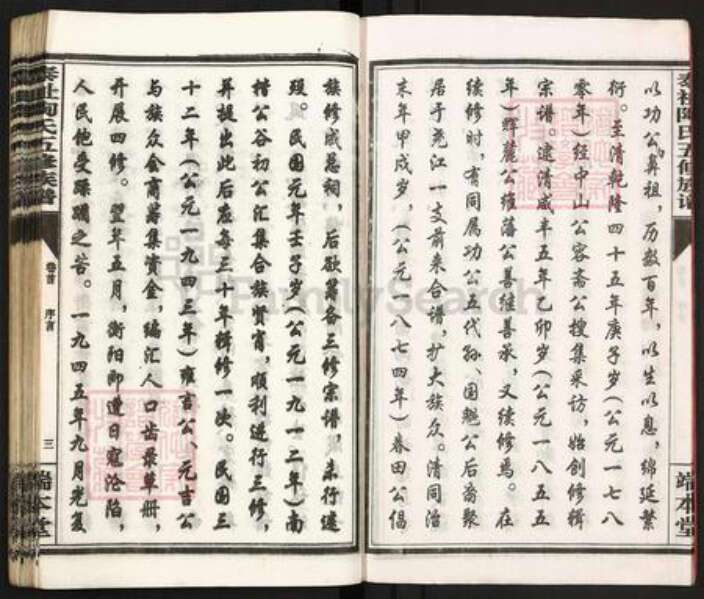 以功公鼻祖，历数百年，以生以息，绵延繁
衍。至清乾隆四十五年庚子岁（公元一七八
零年）经中山公容斋公搜集采访，始创修辑
宗谱。逮清咸丰五年乙卯岁（公元一八五五
年）辉麓公维藩公善继善承，又续修焉。在
续修时，有同属功公五代孙、国魁公后裔聚
居于芜江一支前来合谱，扩大族众。清同治
末年甲戌岁，（公元一八七四年）春田公倡
族修戚恳祠，后欲筹备三修宗谱，未行逮
殁。民国元年壬子岁（公元一九一二年）南
楷公谷初公汇集合族贤肖，顺利进行三修，
并提出此后应每三十年辑修一次。民国三
十二年（公元一九四三年）雍吉公、元吉公
与族众会商筹集资金，编汇人口齿录草册，
开展四修。翌年五月，衡阳即遭日寇沦陷，
人民饱受蹂躏之苦。一九四五年九月光复
陶氏五修族谱
卷首 序言
三
端本堂
端本堂
FamilySearch